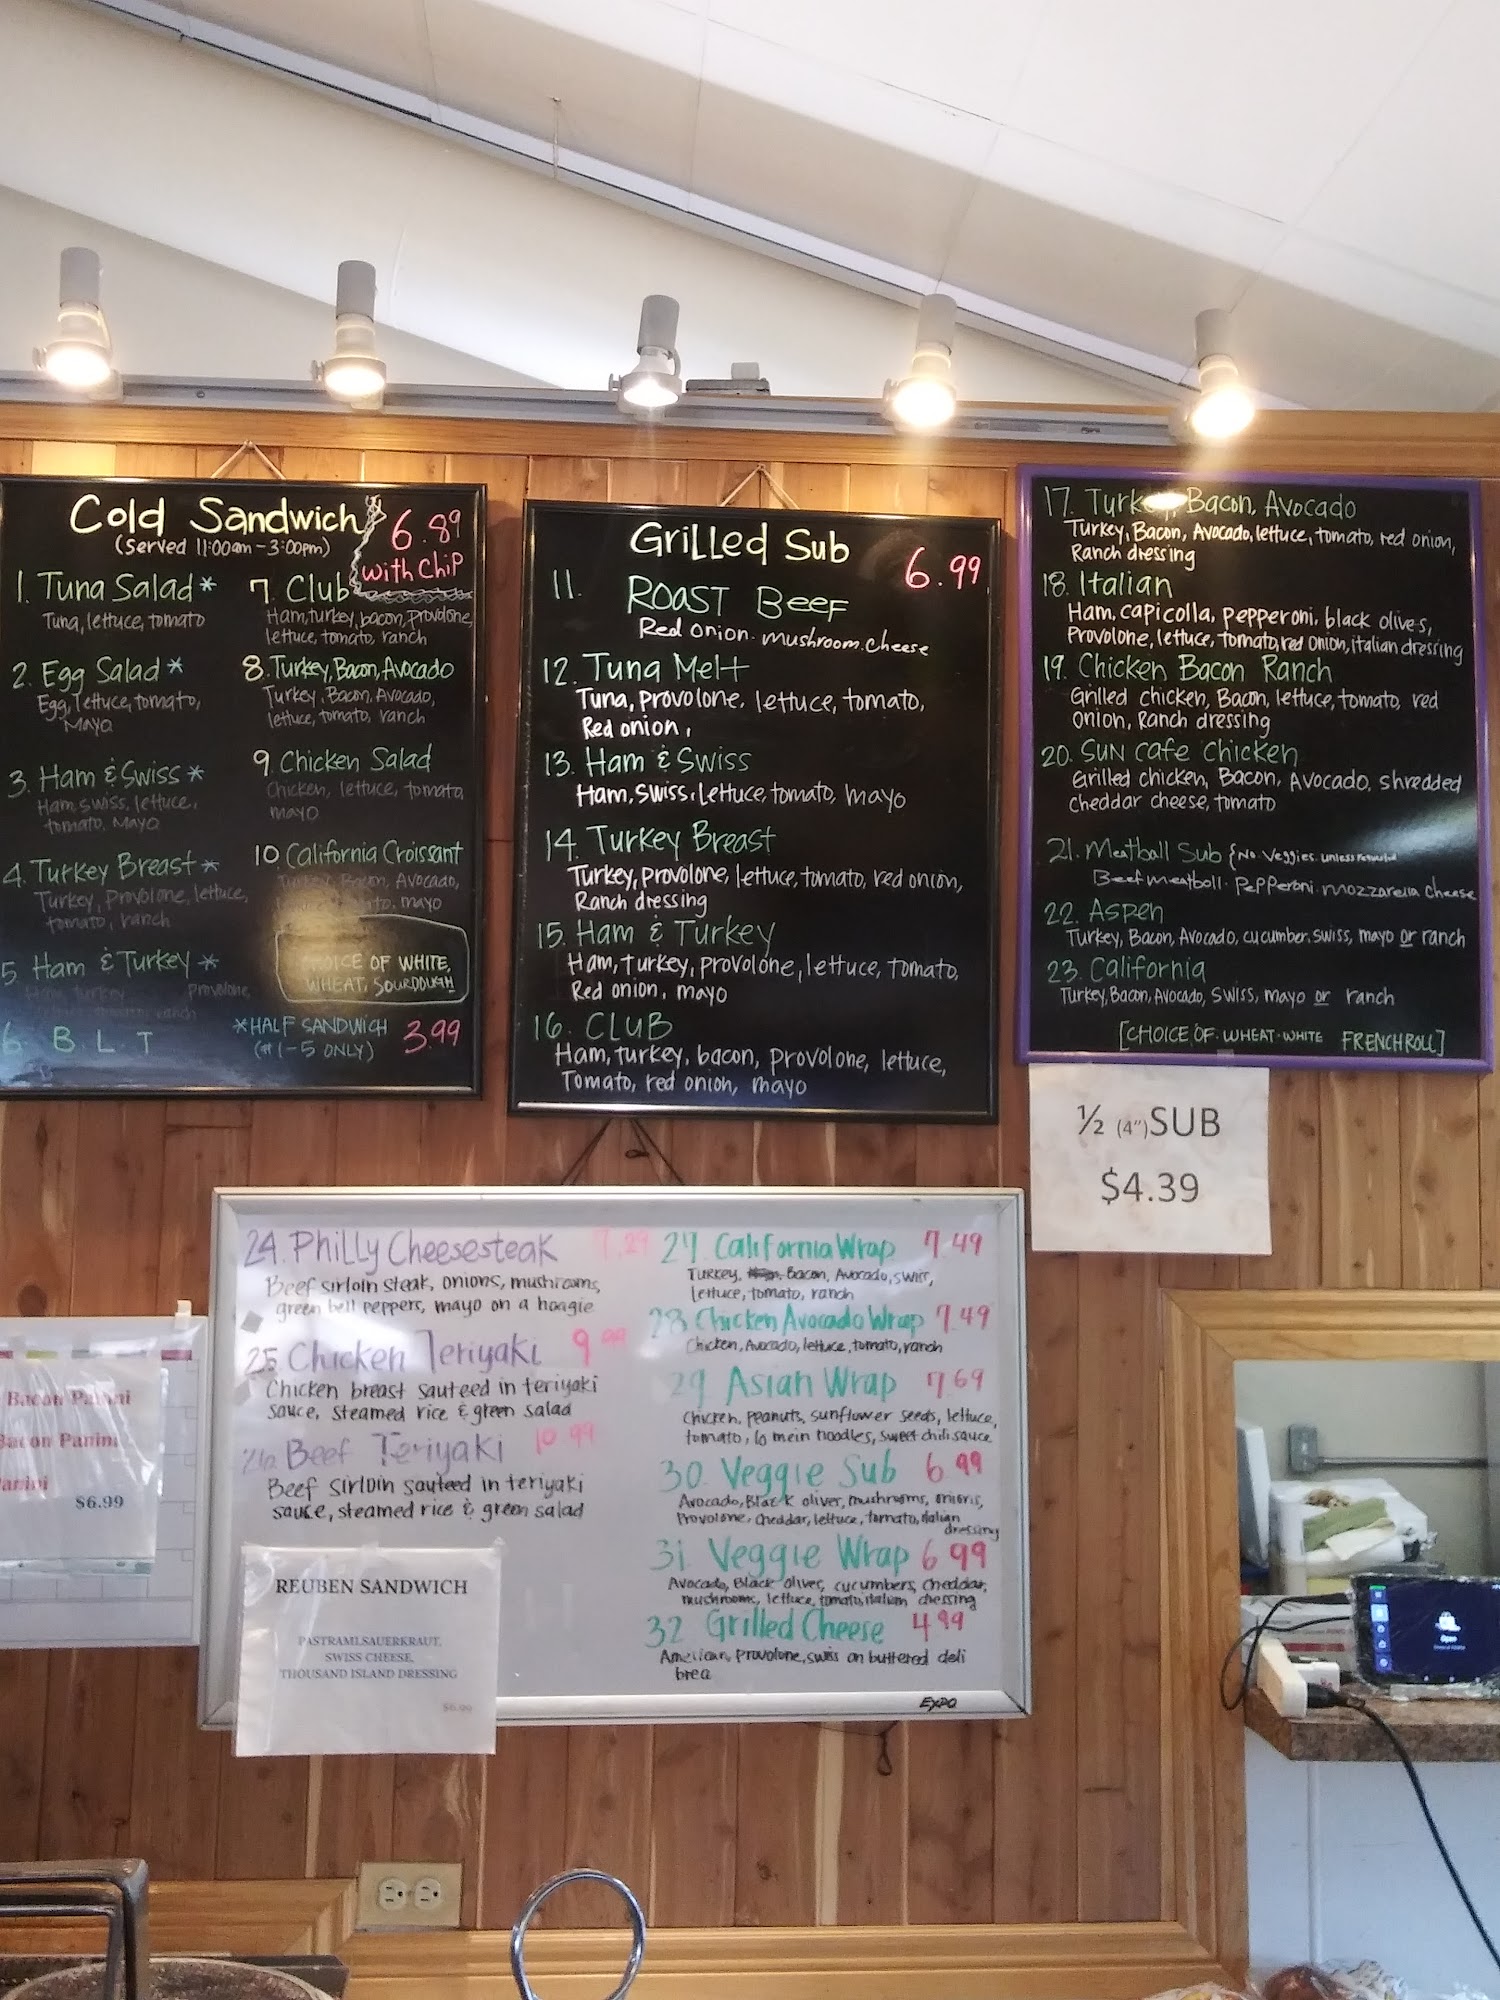 Cold Sandwich
(Served 11:00am-3:00pm)
6.89
with Chip
1. Tuna Salad *
Tuna, lettuce, tomato
2. Egg Salad *
Egg, lettuce, tomato,
Mayo
3. Ham & Swiss *
Ham, swiss, lettuce,
tomato, Mayo
4. Turkey Breast *
Turkey, Provolone, lettuce,
tomato, ranch
5. Ham & Turkey *
Ham, turkey provolone,
6. B.L.T
7. Club
Ham, turkey, bacon, provolone,
lettuce, tomato, ranch
8. Turkey, Bacon, Avocado
Turkey, Bacon, Avocado,
lettuce, tomato, ranch
9. Chicken Salad
Chicken, lettuce, tomato,
mayo
10 California Croissant
Turkey, Bacon, Avocado,
tomato, mayo
CHOICE OF WHITE,
WHEAT, SOURDOUGH
*HALF SANDWICH
(#1-5 ONLY)
3.99
GRILLED SUB
6.99
11. ROAST BEEF
Red onion. mushroom. cheese
12. Tuna Melt
Tuna, provolone, lettuce, tomato,
Red onion,
13. Ham & Swiss
Ham, swiss, lettuce, tomato, mayo
14. Turkey Breast
Turkey, provolone, lettuce, tomato, red onion,
Ranch dressing
15. Ham & Turkey
Ham, turkey, provolone, lettuce, tomato,
Red onion, mayo
16. CLUB
Ham, turkey, bacon, provolone, lettuce,
Tomato, red onion, mayo
17. Turkey, Bacon, Avocado
Turkey, Bacon, Avocado, lettuce, tomato, red onion,
Ranch dressing
18. Italian
Ham, capicolla, pepperoni, black olives,
Provolone, lettuce, tomato, red onion, italian dressing
19. Chicken Bacon Ranch
Grilled chicken, Bacon, lettuce, tomato, red
Onion, Ranch dressing
20. SUN cafe Chicken
Grilled chicken, Bacon, Avocado, shredded
cheddar cheese, tomato
21. Meatball Sub {No veggies unless requested
Beef meatball. pepperoni. mozzarella cheese
22. Aspen
Turkey, Bacon, Avocado, cucumber, swiss, mayo or ranch
23. California
Turkey, Bacon, Avocado, swiss, mayo or ranch
[CHOICE OF. WHEAT. WHITE FRENCH ROLL]
½ (4")SUB
$4.39
24. Philly Cheesesteak 7.29
Beef sirloin steak, onions, mushrooms,
green bell peppers, mayo on a hoagie
25 Chicken Teriyaki 9.99
Chicken breast sauteed in teriyaki
sauce, steamed rice & green salad
26. Beef Teriyaki 10.99
Beef sirloin sauteed in teriyaki
sauce, steamed rice & green salad
27. California Wrap 7.49
Turkey, Bacon, Avocado, swiss,
lettuce, tomato, ranch
28 Chicken Avocado Wrap 7.49
Chicken, Avocado, lettuce, tomato, ranch
29 Asian Wrap 7.69
Chicken, peanuts, sunflower seeds, lettuce,
tomato, lo mein noodles, sweet chili sauce
30. Veggie Sub 6.99
Avocado, Black olives, mushrooms, onions,
Provolone, cheddar, lettuce, tomato, italian
dressing
31 Veggie Wrap 6.99
Avocado, Black olives, cucumbers, cheddar,
mushrooms, lettuce, tomato, italian dressing
32 Grilled Cheese 4.99
American, provolone, swiss on buttered deli
brea
EXPO
REUBEN SANDWICH
PASTRAMI, SAUERKRAUT,
SWISS CHEESE,
THOUSAND ISLAND DRESSING
$6.99
Bacon Panini
Bacon Panini
Panini
$6.99
Open